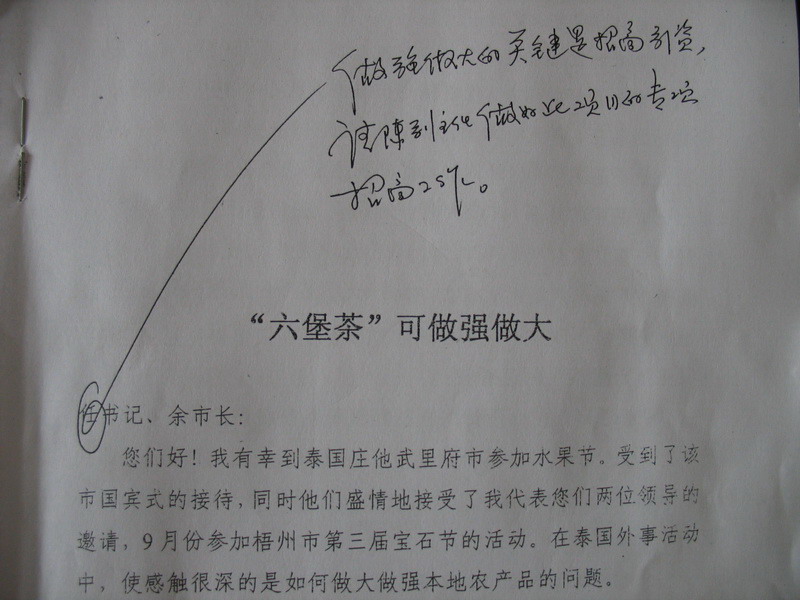 做强做大的关键是招商引资,
请陈副主任做好此项目的专项
招商工作。
“六堡茶”可做强做大
任书记、余市长:
您们好!我有幸到泰国庄他武里府市参加水果节。受到了该
市国宾式的接待,同时他们盛情地接受了我代表您们两位领导的
邀请,9月份参加梧州市第三届宝石节的活动。在泰国外事活动
中,使感触很深的是如何做大做强本地农产品的问题。